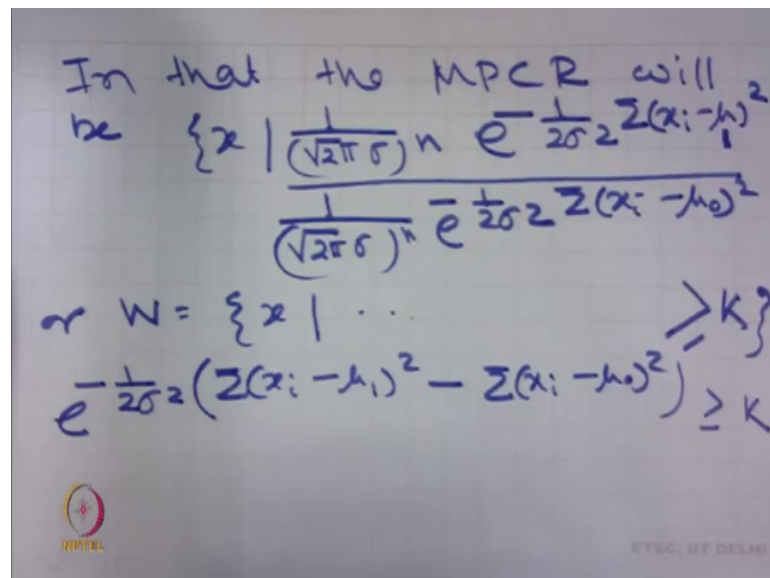 In that the MPCR will
be {x | 1/(√2π σ)^n e^-1/2σ^2 Σ(x_i - μ_1)^2
1/(√2π σ)^n e^-1/2σ^2 Σ(x_i - μ_0)^2
or W = {x | ... ≥ K}
e^-1/2σ^2 (Σ(x_i - μ_1)^2 - Σ(x_i - μ_0)^2) ≥ K
NPTEL
ETSC, IIT DELHI